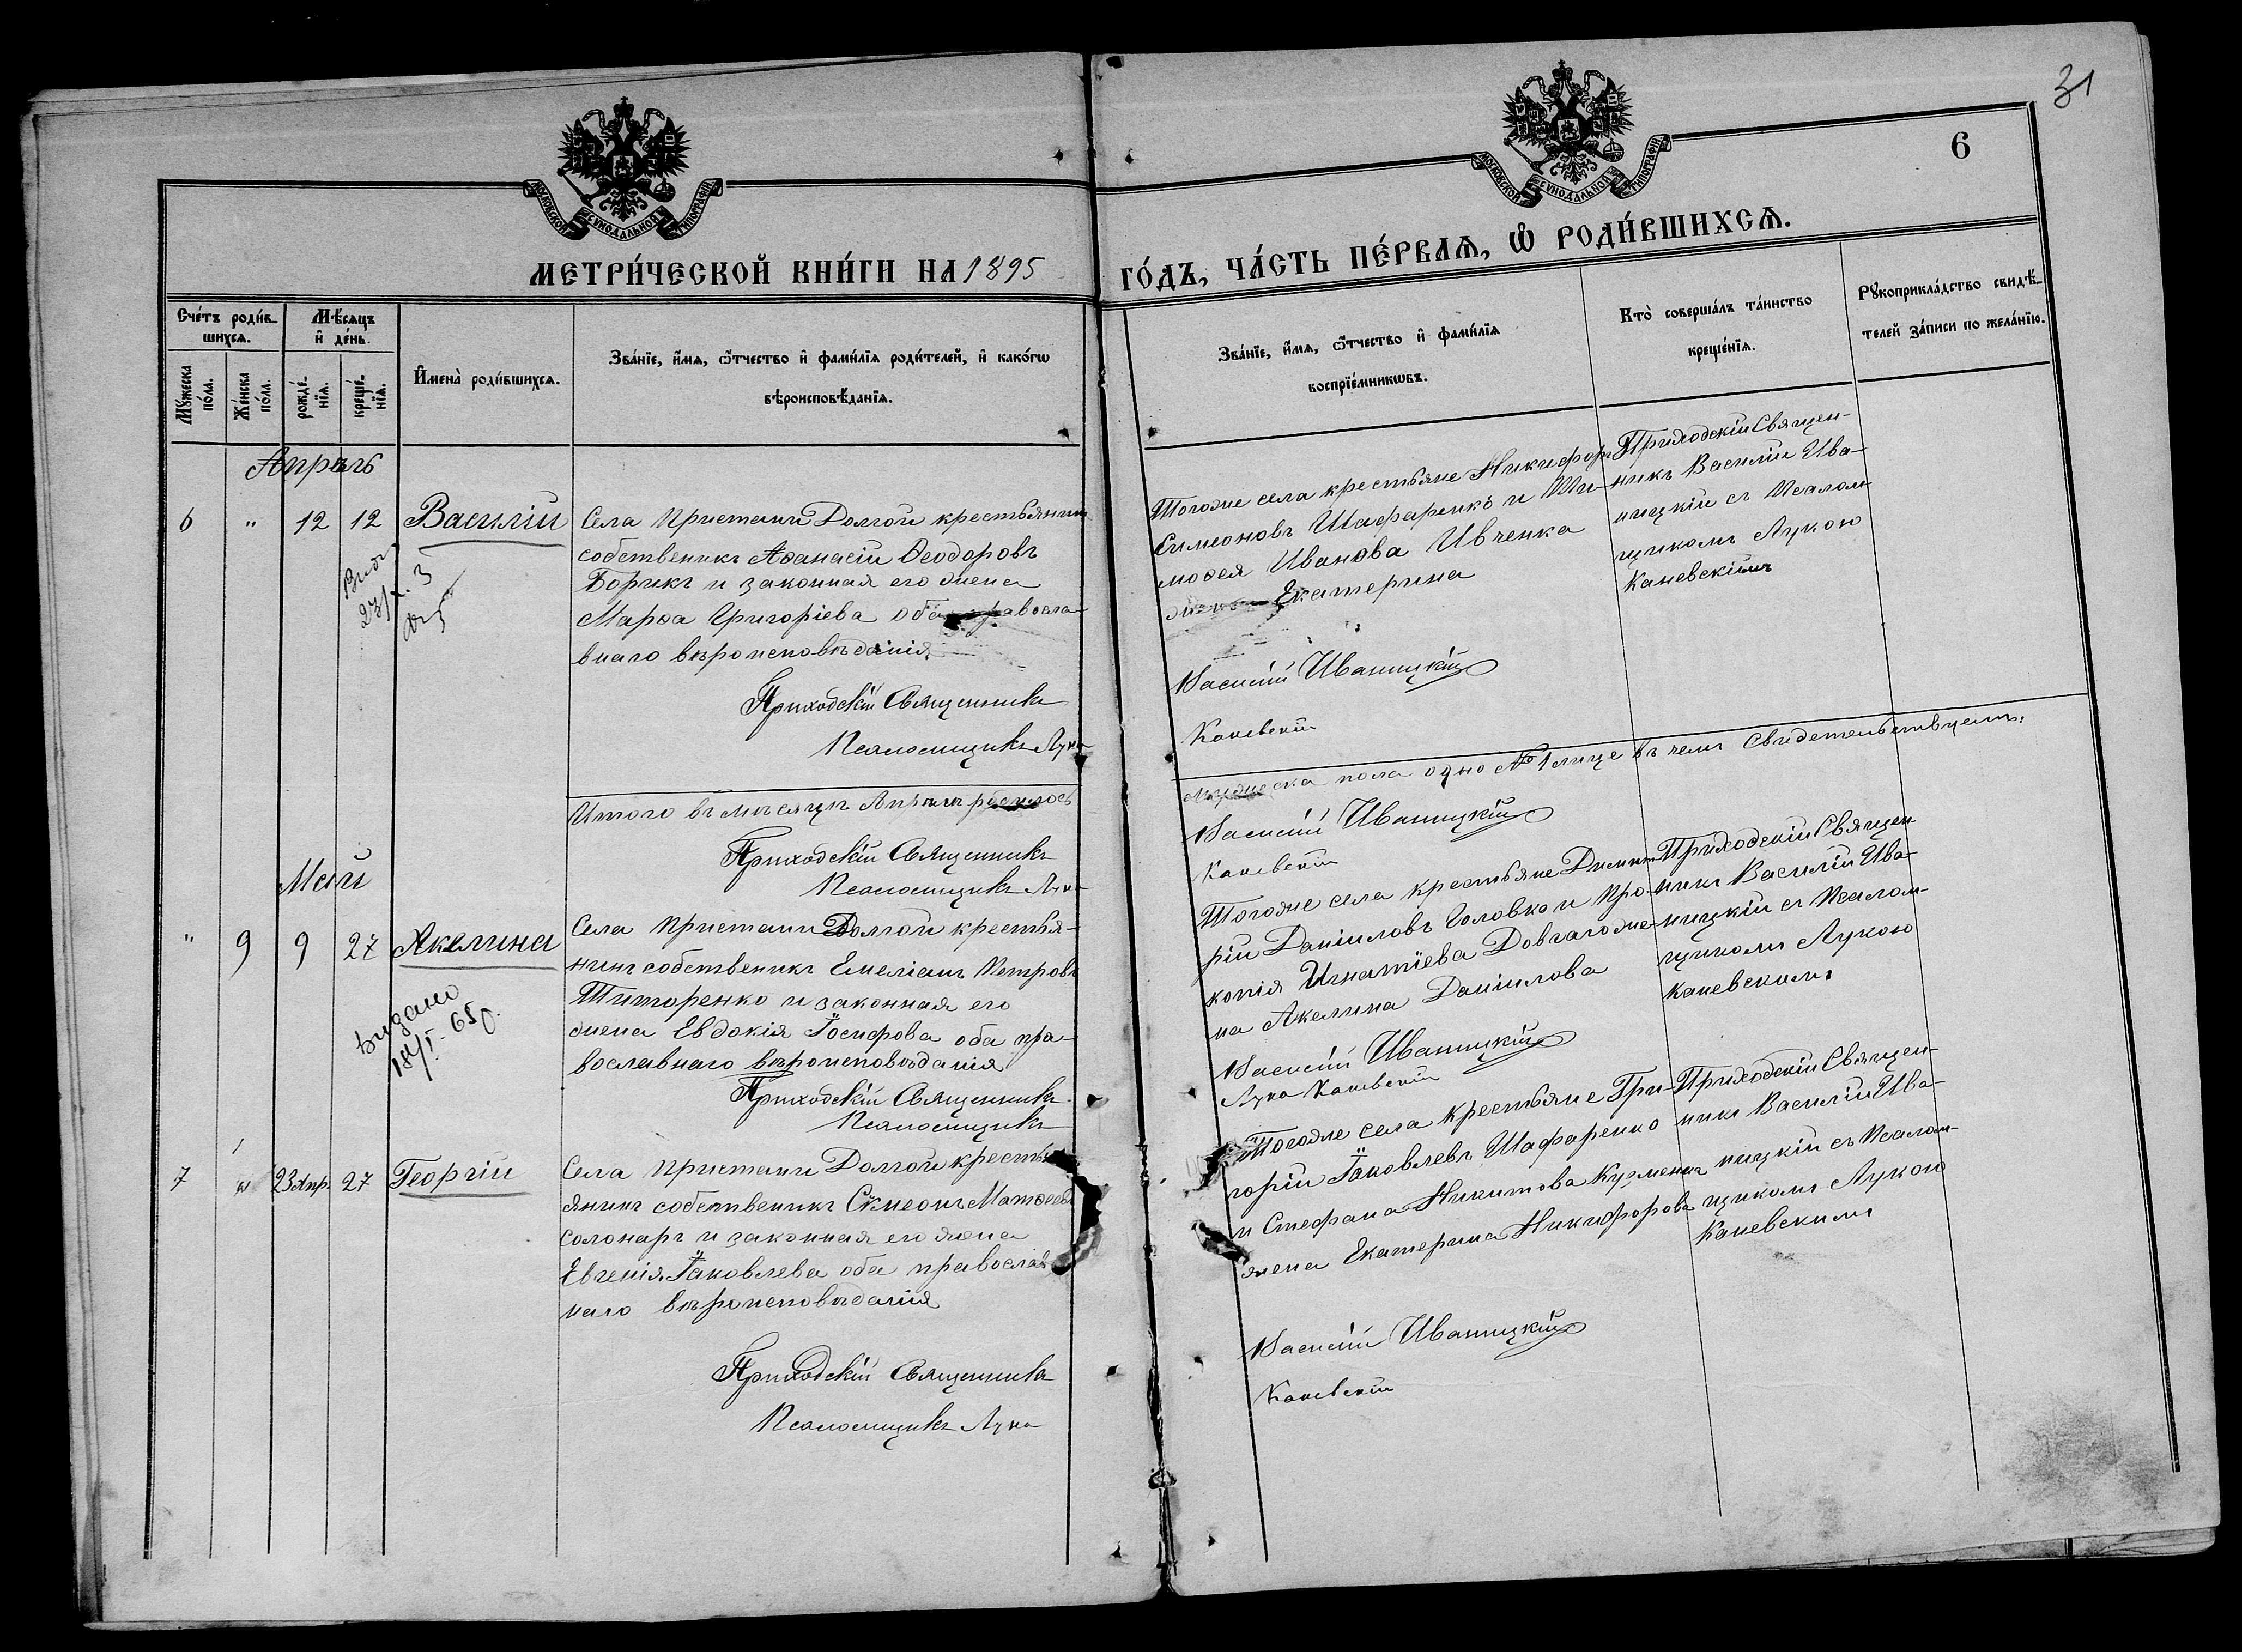 31
6
МОСКОВСКОЙ СѴНОДАЛЬНОЙ ТИПОГРАФІИ
МОСКОВСКОЙ СѴНОДАЛЬНОЙ ТИПОГРАФІИ
МЕТРИ́ЧЕСКОЙ КНИ́ГИ НА 1895
ГО́ДЪ, ЧА́СТЬ ПЕ́РВАѦ, Ѽ РОДИ́ВШИХСѦ.
Сче́тъ роди́в-
шихсѧ.
Мꙋжеска
по́ла.
Же́нска
по́ла.
Мѣ́сяцъ
и҆ де́нь.
рожде́-
нїѧ.
креще́-
нїѧ.
И҆мена̀ роди́вшихсѧ.
Зва́нїе, и҆́мѧ, ѻ҆́тчество и҆ фами́лїѧ роди́телей, и҆ како́гѡ
вѣроисповѣ́данїѧ.
Зва́нїе, и҆́мѧ, ѻ҆́тчество и҆ фами́лїѧ
воспрїе́мникѡвъ.
Кто̀ соверша́лъ та́инство
креще́нїѧ.
Рꙋкоприкла́дство свидѣ́-
телей за́писи по жела́нїю.
Апрѣль
6 " 12 12 Василій
Села Пристани Долгой крестьянинъ
собственикъ Аѳанасій Ѳеодоровъ
Борикъ и законная его жена
Марѳа Григоріева оба правосла-
внаго вѣроисповѣданія
Приходскій Священникъ
Псаломщикъ Лука
Тогоже села крестьяне Никифоръ
Симеоновъ Шафаренко и Ти-
моѳея Иванова Ивченка
жена Екатерина
Василій Иваницкій
Каневскій
Приходскій Священ-
никъ Василій Ива-
ницкій съ Псалом-
щикомъ Лукою
Каневскимъ
Итого въ мѣсяцѣ Апрѣлѣ родилось
мужеска пола одно № 1 лице въ чемъ свидетельствуемъ:
Приходскій Священникъ
Псаломщикъ Лука
Василій Иваницкій
Каневскій
Май
" 9 9 27 Акелина
видано
18/I-65р.
Села Пристани Долгой крестья-
нинъ собственикъ Емеліанъ Петровъ
Титоренко и законная его
жена Евдокія Іосифова оба пра-
вославнаго вѣроисповѣданія
Приходскій Священникъ
Псаломщикъ
Тогоже села крестьяне Димит-
рій Даніиловъ Головко и Про-
копія Игнатіева Довгаго же-
на Акелина Даніилова
Василій Иваницкій
Лука Каневскій
Приходскій Священ-
никъ Василій Ива-
ницкій съ Псалом-
щикомъ Лукою
Каневскимъ
7 " 23 Апр. 27 Георгій
Села Пристани Долгой кресть-
янинъ собственикъ Симеонъ Матѳеевъ
Солонарь и законная его жена
Евгенія Іаковлева оба православ-
наго вѣроисповѣданія
Приходскій Священникъ
Псаломщикъ Лука
Тогоже села крестьяне Гри-
горій Іаковлевъ Шафаренко
и Стефана Никитова Кузменка
жена Екатерина Никифорова
Василій Иваницкій
Каневскій
Приходскій Священ-
никъ Василій Ива-
ницкій съ Псалом-
щикомъ Лукою
Каневскимъ